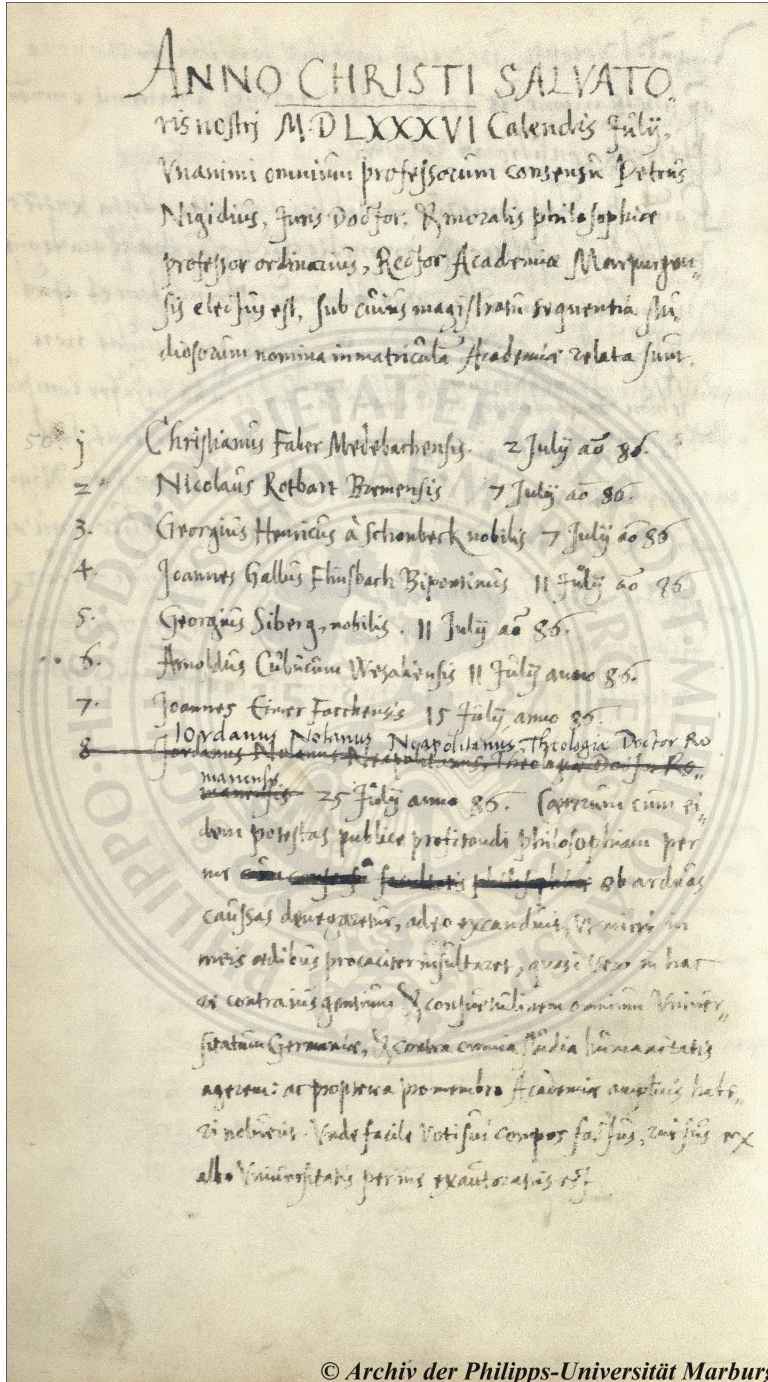 ANNO CHRISTI SALVATO„
ris nostrj M.D LXXXVI Calendis Julÿ,
Vnanimi omnium professorum consensu Petrus
Nigidius, Juris Doctor: & moralis philosophiæ
professor ordinarius, Rector Academiæ Marpurgen„
sis electus est, sub cuius magistratu sequentia stu„
diosorum nomina in matricula Academiæ relata sunt.
50. j Christianus Faber Medebachensis. 2 Julÿ aõ 86.
2 Nicolaus Rotbart Bremensis 7 Julÿ aõ 86.
3. Georgius Henricus à Schonbeck nobilis 7 Julÿ aõ 86
4. Joannes Gallus Bipontinus 11 Julÿ aõ 86
5. Georgius Siberg, nobilis. 11 Julÿ aõ 86.
6. Arnoldus Wesaliensis 11 Julÿ anno 86.
7. Joannes 15 Julÿ anno 86.
8 Iordanus Nolanus Neapolitanus, Theologiæ Doctor Ro
Jordanus Nolanus Neapolitanus, Theologiæ Doctor Ro„
manensis
manensis 25 Julÿ anno 86. cum ei„
dem potestas publice profitendi philosophiam per
me cum consensu facultatis philosophicæ ob arduas
caussas denegaretur, adeo excanduit, vt mihi in
meis ædibus procaciter insultaret, quasi vero in hac
re contra ius gentium & consuetudinem omnium Vniuer„
sitatum Germaniæ, & contra omnia studia humanitatis
agerem: ac propterea pro membro Academiæ amplius habe„
ri noluerit. Vnde facile voti sui compos factus, rursus ex
albo Vniuersitatis per me exautoratus est.
PHILIPPO
© Archiv der Philipps-Universität Marburg